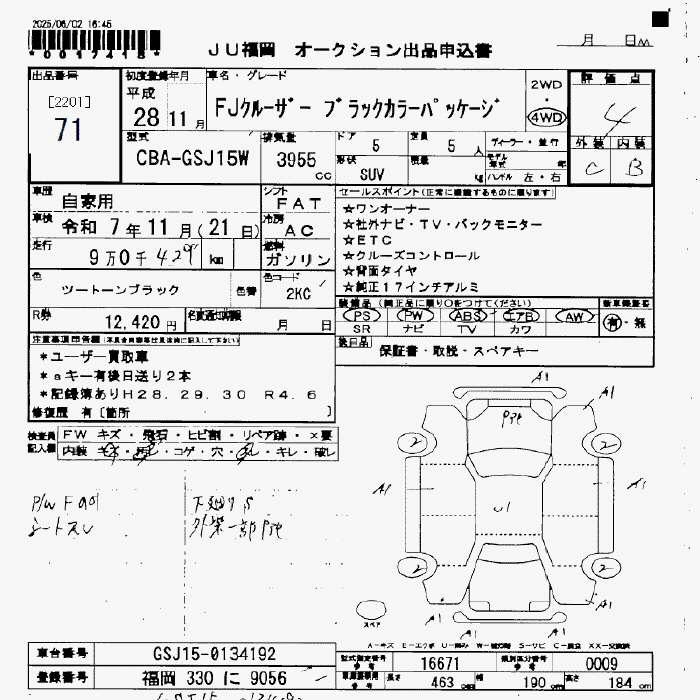 2025/06/02 16:45
*0017418*
JU福岡 オークション出品申込書
月 日
出品番号
[2201]
71
初度登録年月
平成
28 11 月
車名・グレード
FJクルーザー ブラックカラーパッケージ
2WD
・
4WD
評価点
4
外装 内装
C B
型式
CBA-GSJ15W
排気量
3955
cc
ドア 5
定員 5 人
形状 SUV
積載 kg
ディーラー・並行
モデル年式 年
ハンドル 左・右
車歴
自家用
シフト
FAT
車検
令和 7年 11月(21日)
冷房
AC
走行
9万0千429 km
燃料
ガソリン
色
ツートーンブラック
色替
色コード
2KC
R券
12,420円
名変通知期限
月 日
セールスポイント(正常に機能するものに限ります)
☆ワンオーナー
☆社外ナビ・TV・バックモニター
☆ETC
☆クルーズコントロール
☆背面タイヤ
☆純正17インチアルミ
装備品 (純正品に限り○をつけてください)
PS PW ABS エアB AW
SR ナビ TV カワ
新車保証書
有・無
後日品
保証書・取説・スペアキー
注意事項申告欄
*ユーザー買取車
*aキー有後日送り2本
*記録簿ありH28.29.30 R4.6
修復歴 有[箇所 ]
検査員記入欄
FW キズ・飛石・ヒビ割・リペア跡・×要
内装 キズ・汚レ・コゲ・穴・スレ・キレ・破レ
P/W
シートスレ
下廻りS
A1
A1
2
2
A1
U1
2
2
A1
A1
A1
スペア
車台番号
GSJ15-0134192
登録番号
福岡 330 に 9056
型式指定番号
16671
類別区分番号
0009
長さ 463 cm
幅 190 cm
高さ 184 cm